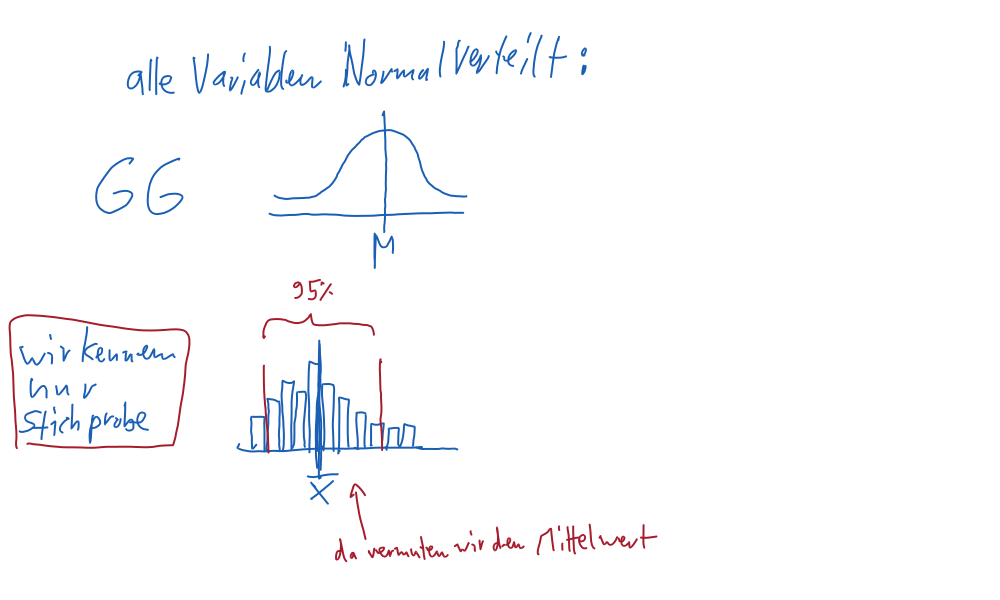 alle Variablen Normalverteilt:
GG
M
95%
wir kennen
nur
Stichprobe
X̄
da vermuten wir den Mittelwert